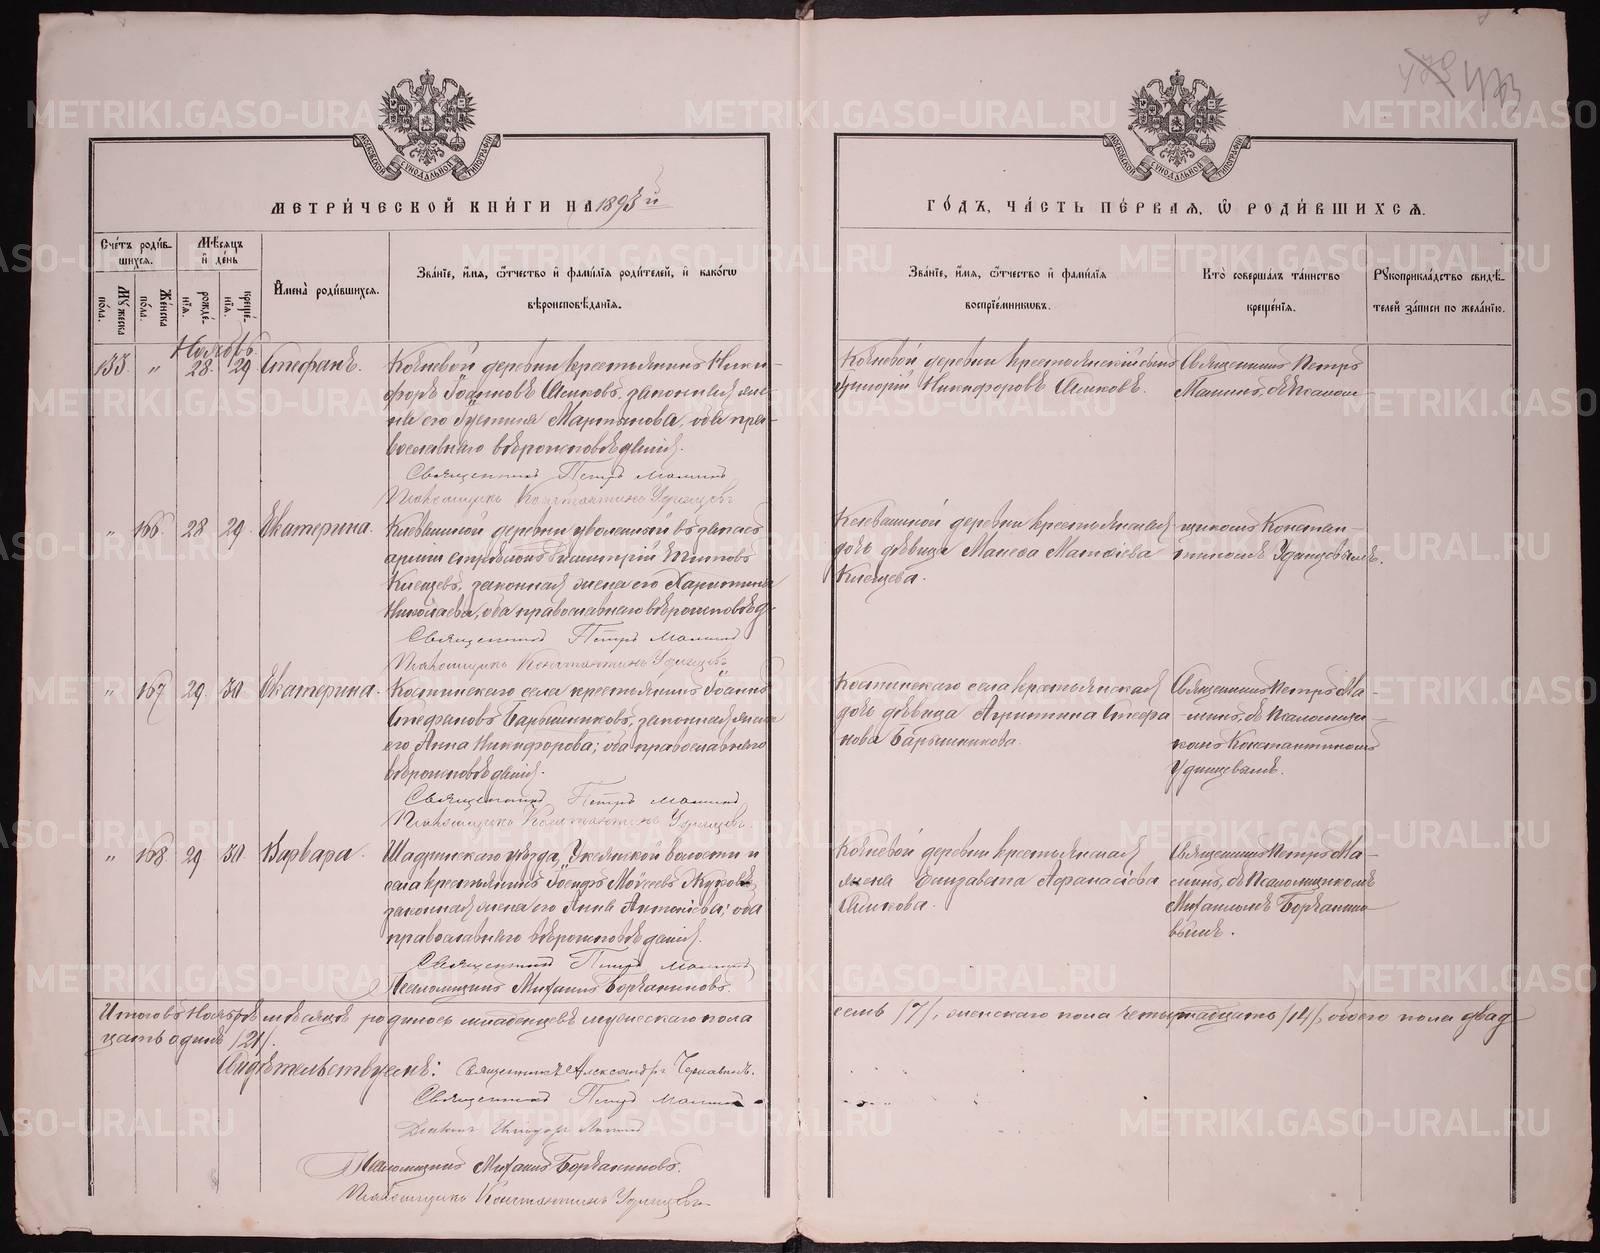 МЕТРИ́ЧЕСКОЙ КНИ́ГИ НА 1893 й
ГО́ДЪ, ЧА́СТЬ ПЕ́РВАЯ, Ѡ РОДИ́ВШИХСЯ.
МОСКОВСКОЙ СУНОДАЛЬНОЙ ТИПОГРАФІИ
МОСКОВСКОЙ СУНОДАЛЬНОЙ ТИПОГРАФІИ
Сче́тъ роди́вшихся.
Му́жеска пола.
Же́нска пола.
Мѣ́сяцъ и҆ де́нь
рожде́нїя.
креще́нїя.
И҆мена̀ роди́вшихся.
Зва́нїе, и҆́мя, ѻ҆́тчество и҆ фами́лїя роди́телей, и҆ како́гѡ
вѣроисповѣ́данїя.
Зва́нїе, и҆́мя, ѻ҆́тчество и҆ фами́лїя
воспрїе́мниковъ.
Кто̀ соверша́лъ та́инство
креще́нїя.
Рꙋкоприкла́дство свидѣ́-
телей за́писи по жела́нїю.
Ноябрь
133. " 28. 29 Стефанъ.
деревни крестьянинъ Ники-
форъ Іоанновъ законная же-
на его Мартынова, оба пра-
вославнаго вѣроисповѣданія.
Священникъ Петръ Мамин
Псаломщикъ Константинъ Удинцевъ
деревни крестьянскій сынъ
Григорій Никифоровъ
Священникъ Петръ
Маминъ, съ Псалом-
" 166. 28 29. Екатерина.
деревни уволенный въ запасъ
арміи Димитрій
законная жена его Харитина
Николаева, оба православнаго вѣроисповѣд.
Священникъ Петръ Мамин
Псаломщикъ Константинъ Удинцевъ
деревни крестьянская
дочь дѣвица Матѳіева
щикомъ Констан-
тиномъ Удинцевымъ.
" 167 29. 30. Екатерина.
Костинскаго села крестьянинъ Іоаннъ
Стефановъ Барышниковъ, законная жена
его Анна Никифорова; оба православнаго
вѣроисповѣданія.
Священникъ Петръ Мамин
Псаломщикъ Константинъ Удинцевъ.
Костинскаго села крестьянская
дочь дѣвица Стефа
нова Барышникова.
Священникъ Петръ Ма-
минъ, съ Псаломщи-
комъ Константиномъ
Удинцевымъ.
" 168 29 30 Варвара.
Шадринскаго уѣзда, волости и
села крестьянинъ Іосифъ Моѵсеевъ Жуковъ,
законная жена его Анна Антоніева; оба
православнаго вѣроисповѣданія.
Священникъ Петръ Мамин
Псаломщикъ Михаилъ
деревни крестьянская
жена Елизавета Афанасіева
Священникъ Петръ Ма-
минъ, съ Псаломщикомъ
Михаиломъ
Итого въ Ноябрѣ мѣсяцѣ родилось младенцевъ мужескаго пола
семь /7/, женскаго пола четырнадцать /14/, обоего пола двад
цать одинъ /21/.
Свидѣтельствуемъ: Священникъ Александръ
Священникъ Петръ Мамин
Псаломщикъ Михаилъ
Псаломщикъ Константинъ Удинцевъ
METRIKI.GASO-URAL.RU